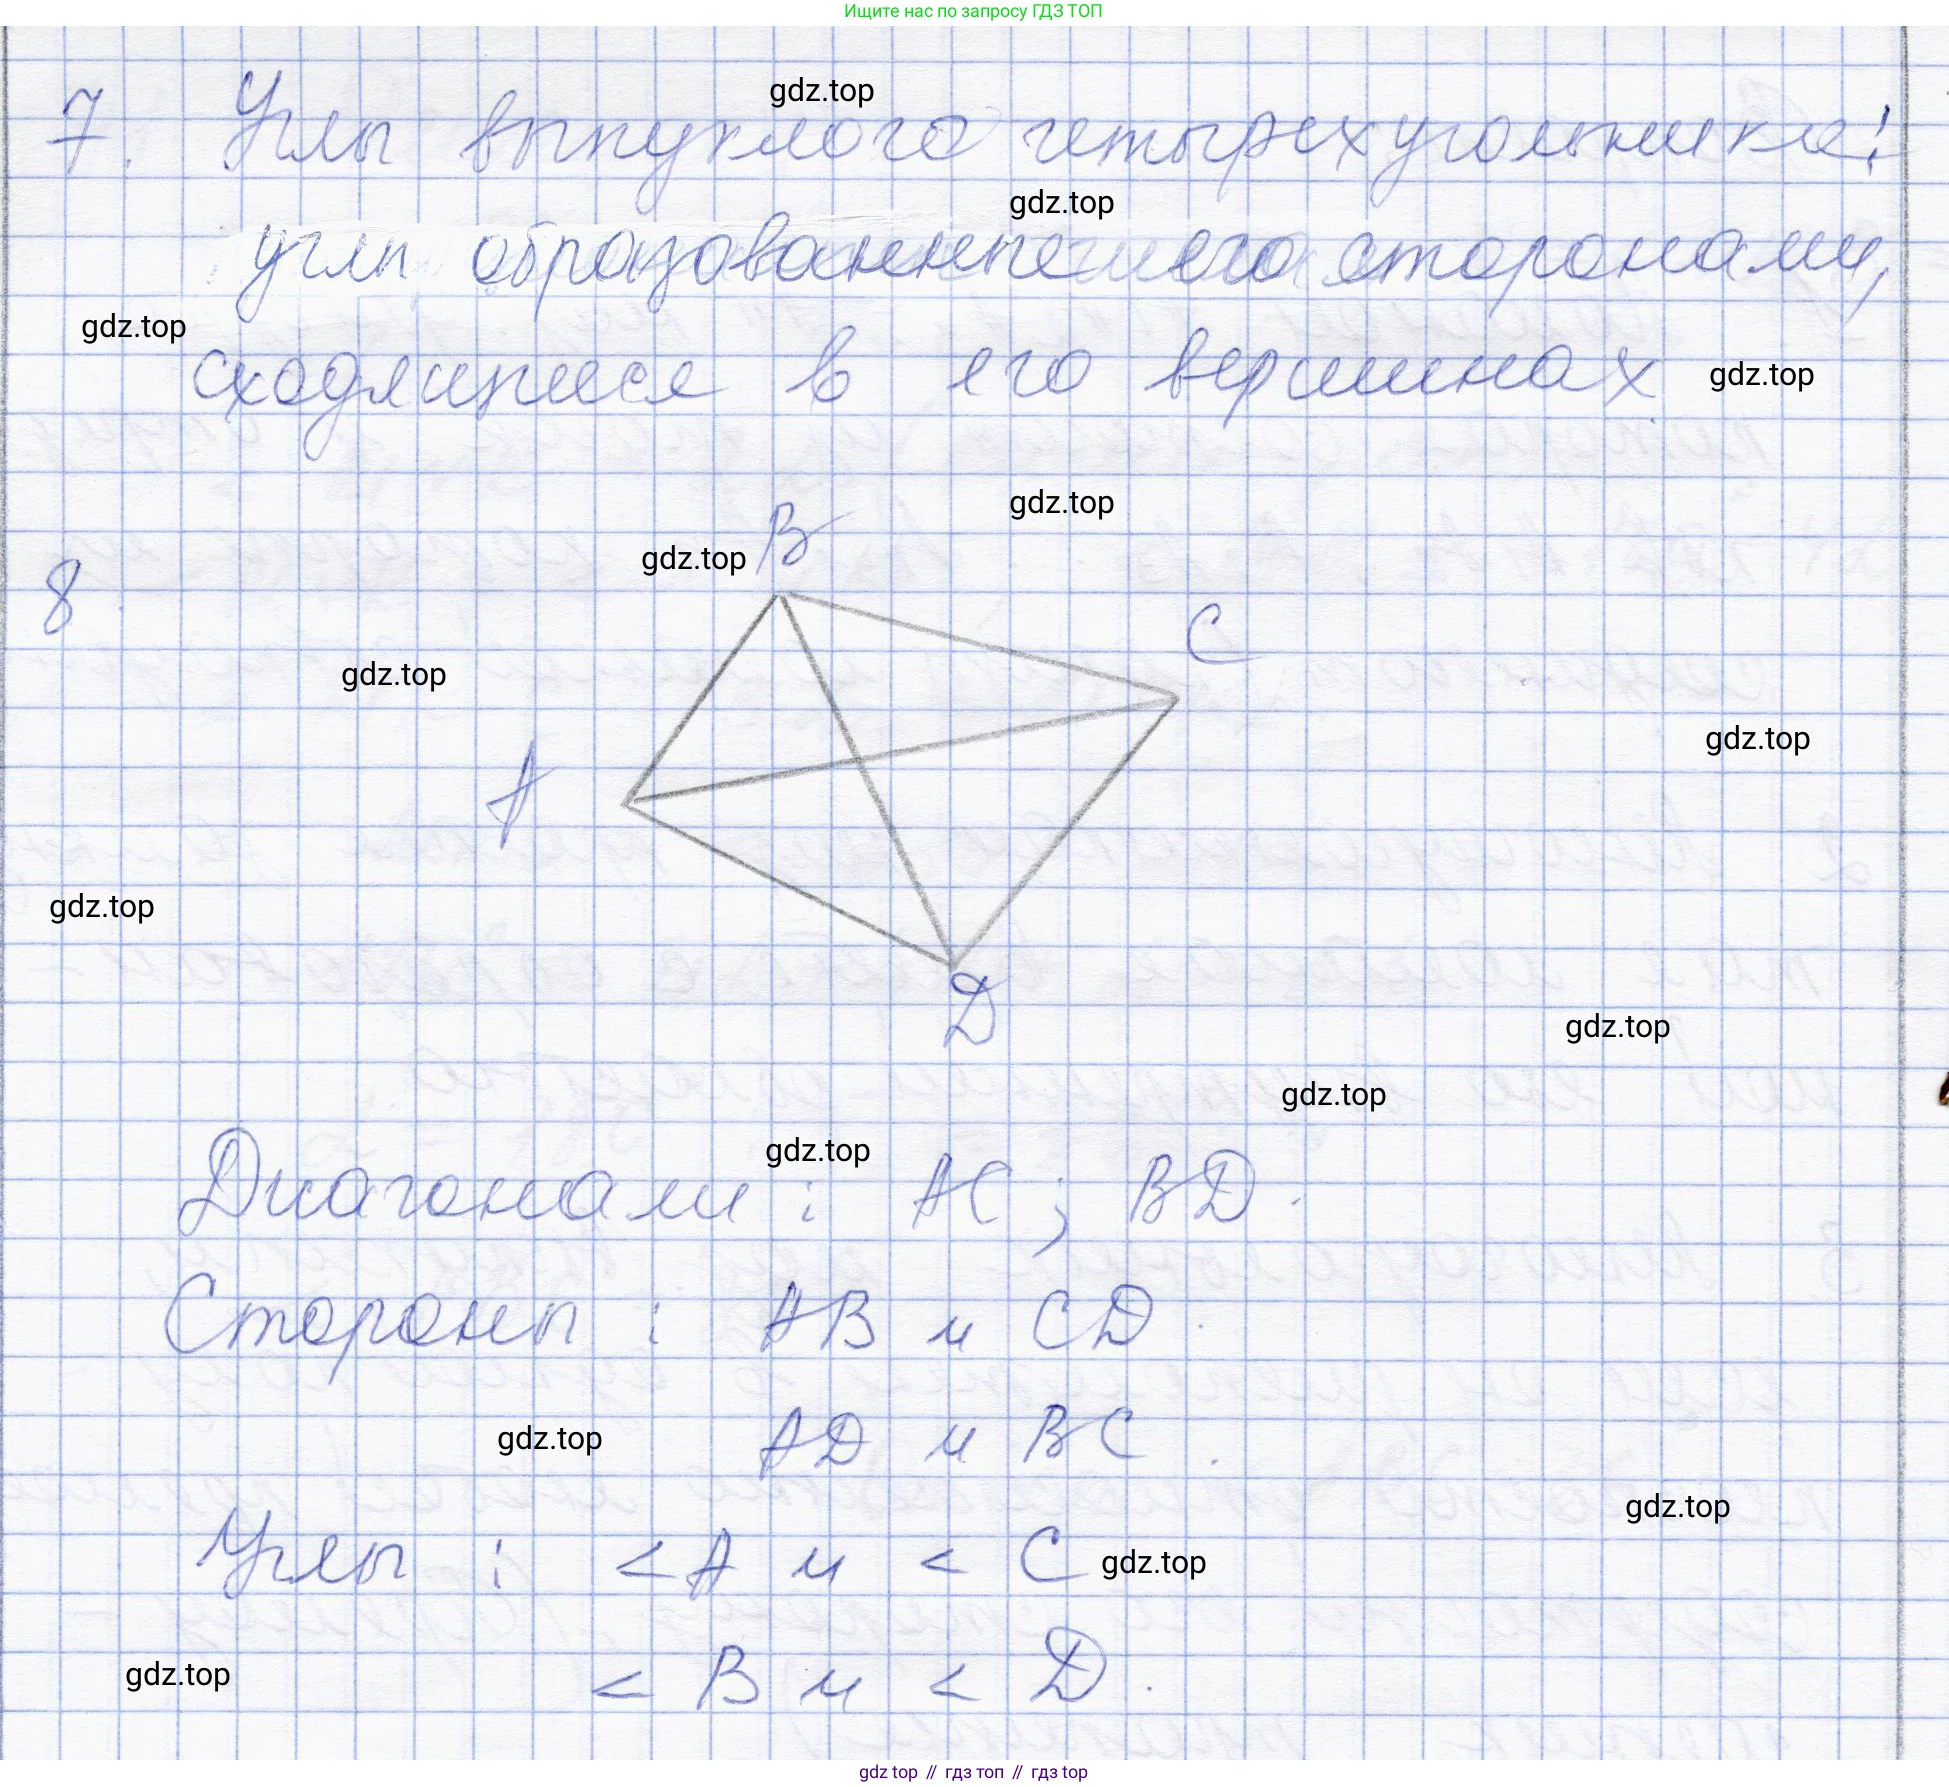 Ищите нас по запросу ГДЗ ТОП
gdz.top
7. Углы выпуклого четырехугольника:
gdz.top
углы образованные его сторонами,
gdz.top
сходящиеся в его вершинах
gdz.top
gdz.top
B
gdz.top
8.
C
gdz.top
gdz.top
A
gdz.top
D
gdz.top
gdz.top
gdz.top
Диагонали: AC; BD.
Стороны: AB и CD.
gdz.top
AD и BC.
gdz.top
Углы: <A и <C
gdz.top
gdz.top
<B и <D.
gdz top // гдз топ // гдз top